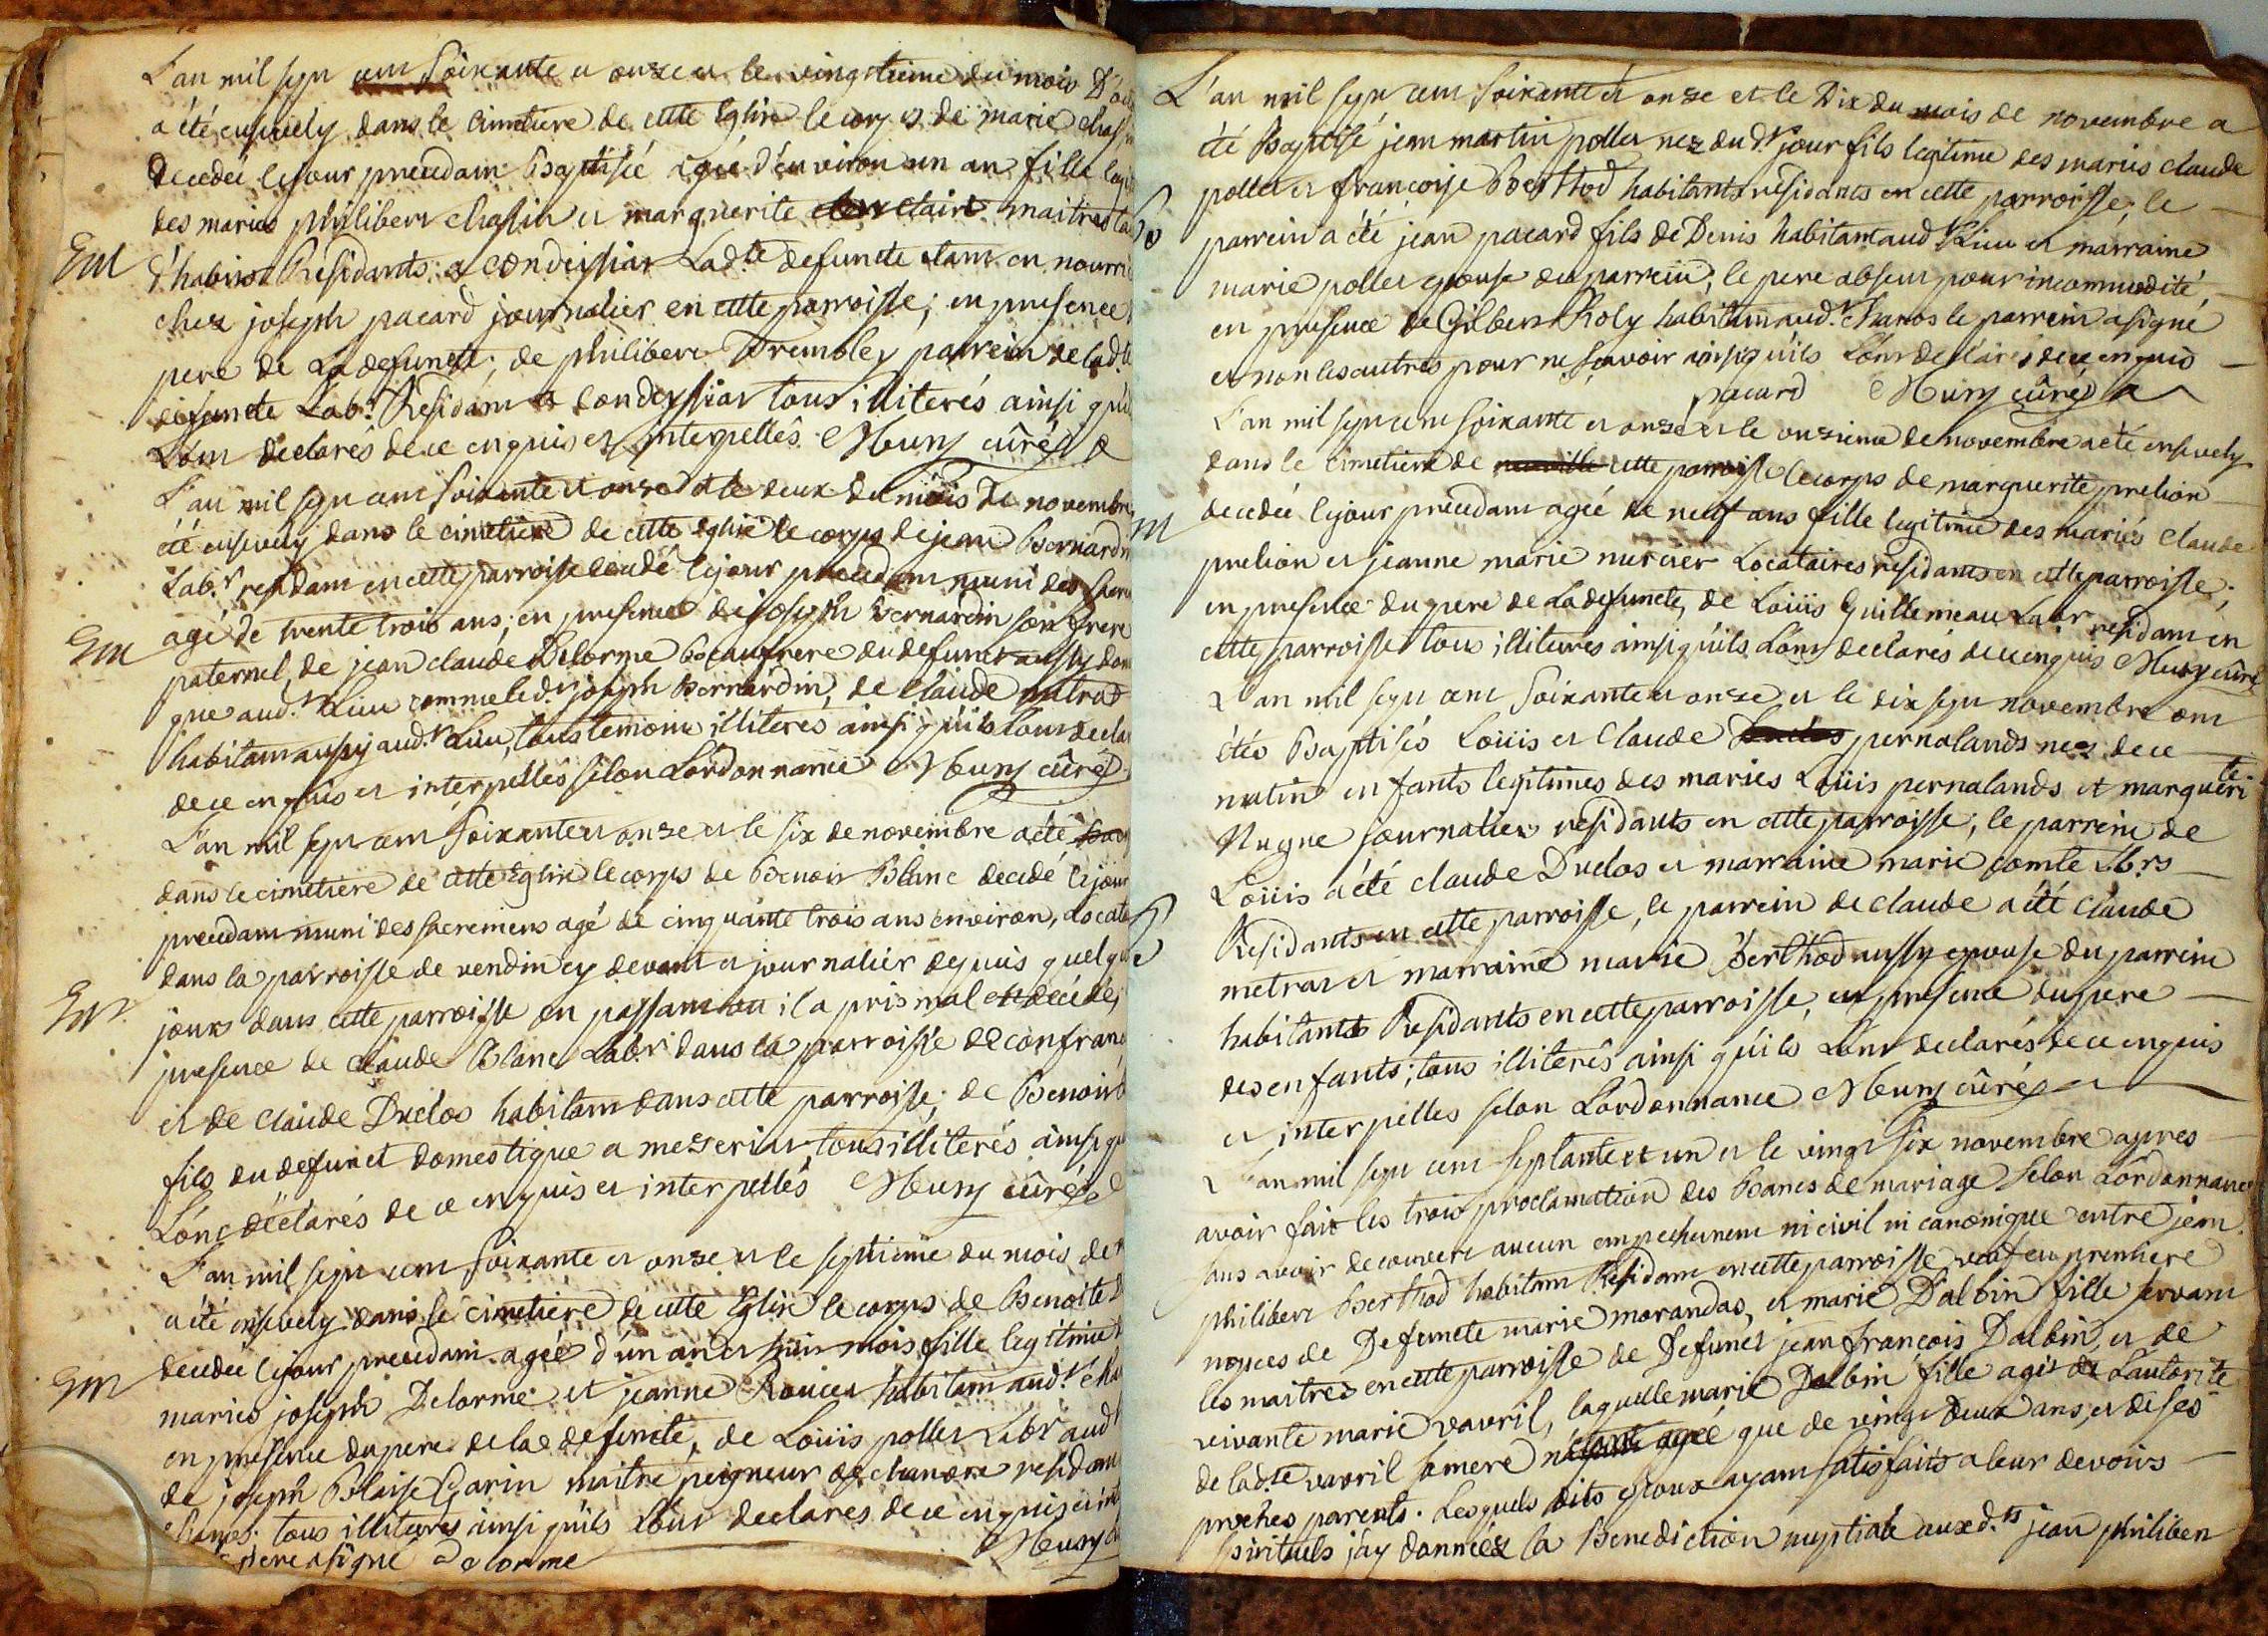 L'an mil sept cent Soixante et onze et le vingtieme du mois D'
a été ensevely dans le Cimetiere de cette Eglise le corps de marie
decedée le jour precedam Baptisée agée d'environ un an fille
des mariés philibert chasin et marguerite clair maitres
d'habiso Residants a condeissiat Ladte defuncte etant en nourri
Em
chez joseph pacard journalier en cette parroisse; en presence
pere de La defuncte; de philibert Trembley parrein de ladte
defuncte Labr Residam a condeyssiat tous illiterés ainsi qu'
L'ont declarés de ce enquis et interpellés. Mury cûré
L'an mil sept cent soixante et onze et le deux du mois de novembre
été ensevely dans le cimetiere de cette Eglise le corps de jean Bernardin
Labr residam en cette parroisse decedé le jour precedam muni des
agé de trente trois ans; en presence de joseph Bernardin son frere
Em
paternel, de jean claude Delorme Beaufrere du defunct aussy
que audt Lieu comme ledt joseph Bernardin, de claude
habitam aussy audt Lieu, tous temoins illiteres ainsi qu'ils L'ont
de ce enquis et interpellés selon Lordonnance Mury cûré
L'an mil sept cent Soixante et onze et le six de novembre a été
dans le cimetiere de cette Eglise le corps de Benoit Blanc decedé le jour
precedam muni des sacremens agé de cinquante trois ans environ,
dans la parroisse de vendin cy devant et journalier depuis quelq
Em
jours dans cette parroisse en passant ou il a pris mal et decedé,
presence de Claude Blanc Labr dans la parroisse de confran
et de Claude Duclos habitam dans cette parroisse; de Benoit
fils du defunct domestique a mezeriat, tous illiterés ainsi qu
L'ont declarés de ce enquis et interpellés Mury cûré
L'an mil sept cent Soixante et onze et le septieme du mois de
a été ensevely dans le cimetiere de cette Eglise le corps de Benoite
decedée le jour precedam agée d'un an et huit mois fille legitime
Em
mariés joseph Delorme et jeanne Rouier habitam audt
en presence du pere de la defuncte, de Loüis pollet Labr audt
de joseph Blaise Garin maitre peigneur de chanvre residam
tous illiterés ainsi qu'ils L'ont declares de ce enquis et
pere a signé Delorme Mury
L'an mil sept cent soixante et onze et le Dix du mois de novembre a
été Baptisé jean martin pollet nez dudt jour fils legitime des mariés claude
pollet et françoise Berthod habitants residants en cette parroisse; le
B
parrein a été jean pacard fils de Denis habitant audt Lieu et marraine
marie pollet epouse du parrein; le pere absent pour incommodité,
en presence de Gilbert Roly habitam audt Chanos le parrein a signé
et non les autres pour ne sçavoir ainsi qu'ils L'ont declarés de ce enquis
pacard Mury cûré
L'an mil sept cent soixante et onze et le onzieme de novembre a été ensevely
dans le cimetiere de cette parroisse le corps de marguerite prelion
m
decedée le jour precedam agée de neuf ans fille legitime des mariés Claude
prelion et jeanne marie mercier Locataires residants en cette parroisse;
en presence du pere de La defuncte, de Loüis Guillemeau Labr residam en
cette parroisse tous illiterés ainsi qu'ils L'ont declarés de ce enquis Mury cûré
L'an mil sept cent soixante et onze et le dix sept novembre ont
étés Baptisés Loüis et Claude pernalands nez de ce
matin enfants legitimes des mariés Loüis pernalands et marguerite
Nugue journalier residants en cette parroisse; le parrein de
Loüis a été claude Duclos et marraine marie comte lbrs
B
Residants en cette parroisse, le parrein de claude a été claude
metras et marraine marie Berthod aussy epouse du parrein
habitants Residants en cette parroisse, en presence du pere
des enfants; tous illiterés ainsi qu'ils L'ont declarés de ce enquis
et interpellés selon Lordonnance Mury cûré
L'an mil sept cent septante et un et le vingt six novembre apres
avoir fait les trois proclamation des Bancs de mariage selon Lordonnance
sans avoir decouvert aucun empechement ni civil ni canonique entre jean
philibert Berthod habitam Residam en cette parroisse veuf en premiere
nopces de Defuncte marie morandas, et marie Dalbin fille servam
les maitres en cette parroisse de Defunct jean françois Dalbin, et de
vivante marie vavril, laquelle marie Dalbin fille agit de L'autorité
de ladte vavril sa mere n'etant agée que de vingt deux ans, et de ses
proches parents. Lesquels dits epoux ayant satisfaits a leur devoirs
spirituels j'ay donnéz la Benediction nuptiale auxdts jean philibert